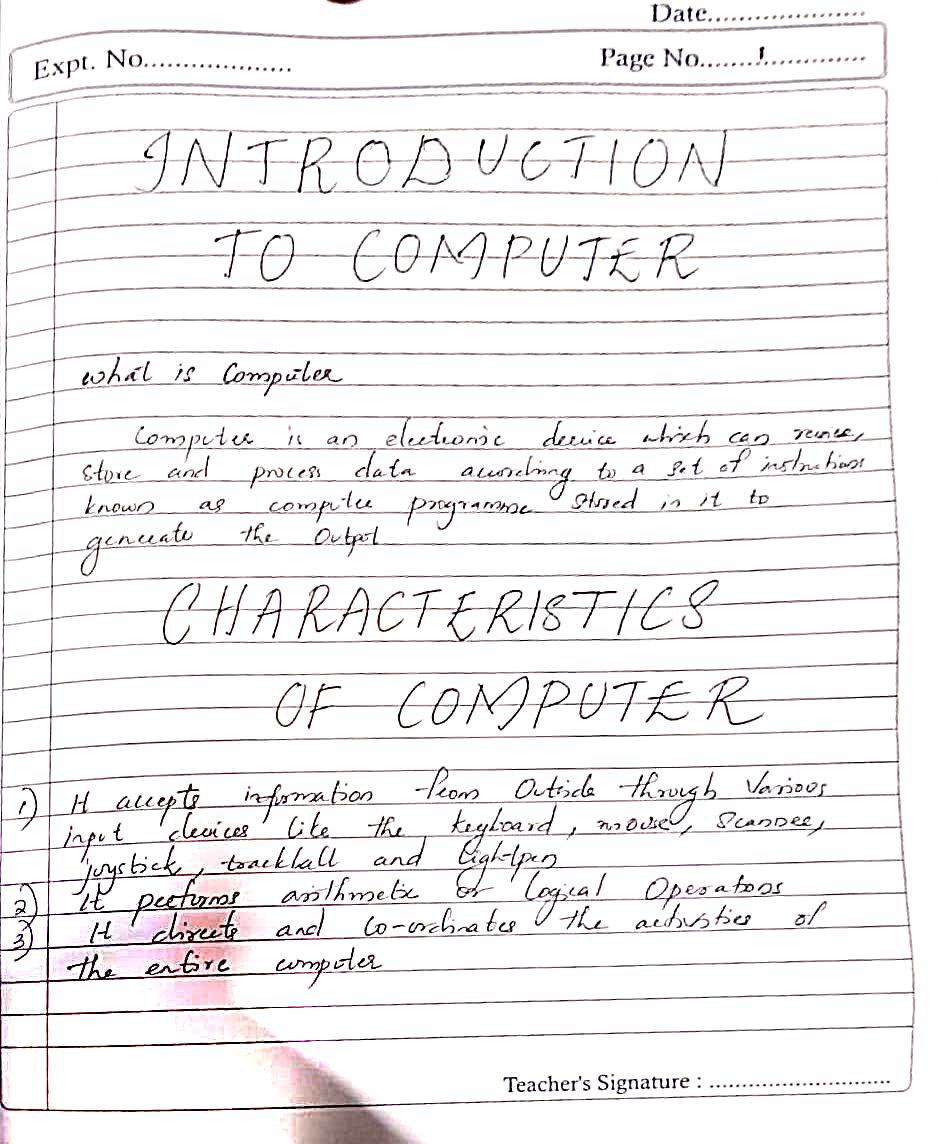 Date....................
Expt. No....................
Page No.......1.............
INTRODUCTION
TO COMPUTER
what is Computer
Computer is an electronic device which can receive,
store and process data according to a set of instructions
known as computer programme stored in it to
generate the Output
CHARACTERISTICS
OF COMPUTER
1) It accepts information from Outside through Various
input devices like the keyboard, mouse, Scanner,
joystick, trackball and lightpen
2) It performs arithmetic or logical Operations
3) It directs and Co-ordinates the activities of
the entire computer
Teacher's Signature : .............................